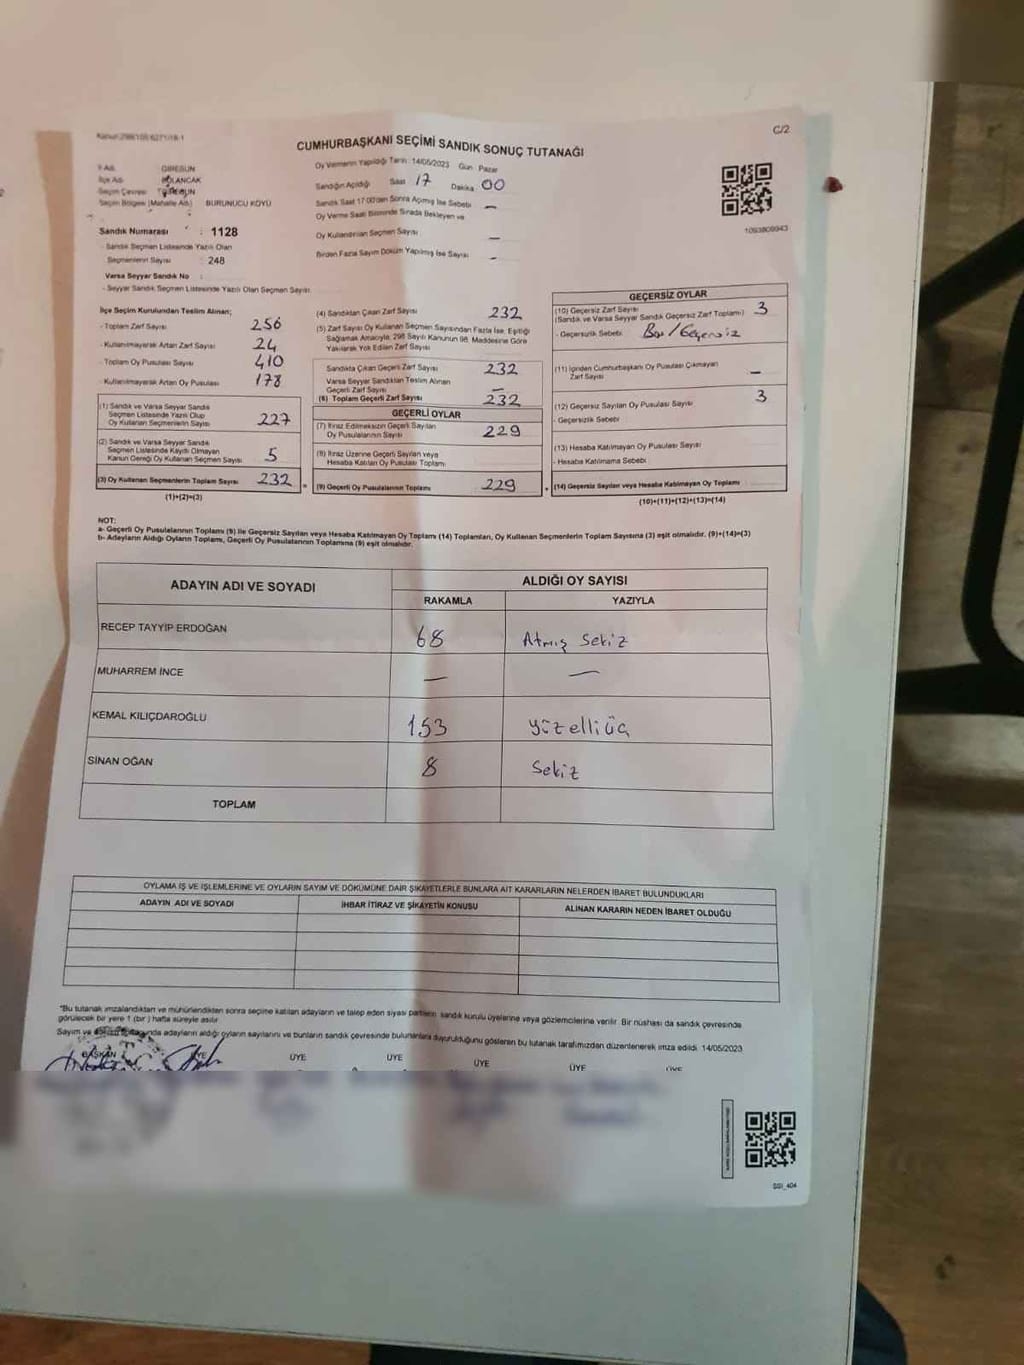 Kanun:298/105 6271/18-1
C/2
CUMHURBAŞKANI SEÇİMİ SANDIK SONUÇ TUTANAĞI
İl Adı GİRESUN
İlçe Adı BULANCAK
Seçim Çevresi
Seçim Bölgesi (Mahalle Adı) BURUNUCU KÖYÜ
Sandık Numarası : 1128
- Sandık Seçmen Listesinde Yazılı Olan
Seçmenlerin Sayısı : 248
Varsa Seyyar Sandık No :
- Seyyar Sandık Seçmen Listesinde Yazılı Olan Seçmen Sayısı
Oy Vermenin Yapıldığı Tarih: 14/05/2023 Gün Pazar
Sandığın Açıldığı Saat 17 Dakika 00
Sandık Saat 17:00'den Sonra Açılmış İse Sebebi —
Oy Verme Saati Bitiminde Sırada Bekleyen ve
Oy Kullandırılan Seçmen Sayısı —
Birden Fazla Sayım Döküm Yapılmış İse Sayısı -
1093809943
İlçe Seçim Kurulundan Teslim Alınan;
- Toplam Zarf Sayısı 256
- Kullanılmayarak Artan Zarf Sayısı 24
- Toplam Oy Pusulası Sayısı 410
- Kullanılmayarak Artan Oy Pusulası 178
(1) Sandık ve Varsa Seyyar Sandık
Seçmen Listesinde Yazılı Olup
Oy Kullanan Seçmenlerin Sayısı 227
(2) Sandık ve Varsa Seyyar Sandık
Seçmen Listesinde Kaydı Olmayan
Kanun Gereği Oy Kullanan Seçmen Sayısı 5
(3) Oy Kullanan Seçmenlerin Toplam Sayısı 232
(1)+(2)=(3)
(4) Sandıktan Çıkan Zarf Sayısı 232
(5) Zarf Sayısı Oy Kullanan Seçmen Sayısından Fazla İse, Eşitliği
Sağlamak Amacıyla, 298 Sayılı Kanunun 98. Maddesine Göre
Yakılarak Yok Edilen Zarf Sayısı
Sandıkta Çıkan Geçerli Zarf Sayısı 232
Varsa Seyyar Sandıktan Teslim Alınan
Geçerli Zarf Sayısı —
(6) Toplam Geçerli Zarf Sayısı 232
GEÇERLİ OYLAR
(7) İtiraz Edilmeksizin Geçerli Sayılan
Oy Pusulalarının Sayısı 229
(8) İtiraz Üzerine Geçerli Sayılan veya
Hesaba Katılan Oy Pusulası Toplamı
(9) Geçerli Oy Pusulalarının Toplamı 229
GEÇERSİZ OYLAR
(10) Geçersiz Zarf Sayısı 3
(Sandık ve Varsa Seyyar Sandık Geçersiz Zarf Toplamı)
- Geçersizlik Sebebi Boş/Geçersiz
(11) İçinden Cumhurbaşkanı Oy Pusulası Çıkmayan
Zarf Sayısı —
(12) Geçersiz Sayılan Oy Pusulası Sayısı 3
- Geçersizlik Sebebi
(13) Hesaba Katılmayan Oy Pusulası Sayısı
- Hesaba Katılmama Sebebi
(14) Geçersiz Sayılan veya Hesaba Katılmayan Oy Toplamı
(10)+(11)+(12)+(13)=(14)
NOT:
a- Geçerli Oy Pusulalarının Toplamı (9) ile Geçersiz Sayılan veya Hesaba Katılmayan Oy Toplamı (14) Toplamları, Oy Kullanan Seçmenlerin Toplam Sayısına (3) eşit olmalıdır. (9)+(14)=(3)
b- Adayların Aldığı Oyların Toplamı, Geçerli Oy Pusulalarının Toplamına (9) eşit olmalıdır.
ADAYIN ADI VE SOYADI ALDIĞI OY SAYISI
RAKAMLA YAZIYLA
RECEP TAYYİP ERDOĞAN 68 Atmış Sekiz
MUHARREM İNCE — —
KEMAL KILIÇDAROĞLU 153 yüzelliüç
SİNAN OĞAN 8 Sekiz
TOPLAM
OYLAMA İŞ VE İŞLEMLERİNE VE OYLARIN SAYIM VE DÖKÜMÜNE DAİR ŞİKAYETLERLE BUNLARA AİT KARARLARIN NELERDEN İBARET BULUNDUKLARI
ADAYIN ADI VE SOYADI İHBAR İTİRAZ VE ŞİKAYETİN KONUSU ALINAN KARARIN NEDEN İBARET OLDUĞU
*Bu tutanak imzalandıktan ve mühürlendikten sonra seçime katılan adayların ve talep eden siyasi partilerin sandık kurulu üyelerine veya gözlemcilerine verilir. Bir nüshası da sandık çevresinde
görülecek bir yere 1 (bir) hafta süreyle asılır.
Sayım ve sonucunda adayların aldığı oyların sayılarını ve bunların sandık çevresinde bulunanlara duyurulduğunu gösteren bu tutanak tarafımızdan düzenlenerek imza edildi. 14/05/2023
BAŞKAN ÜYE ÜYE ÜYE ÜYE ÜYE ÜYE
SSI_404